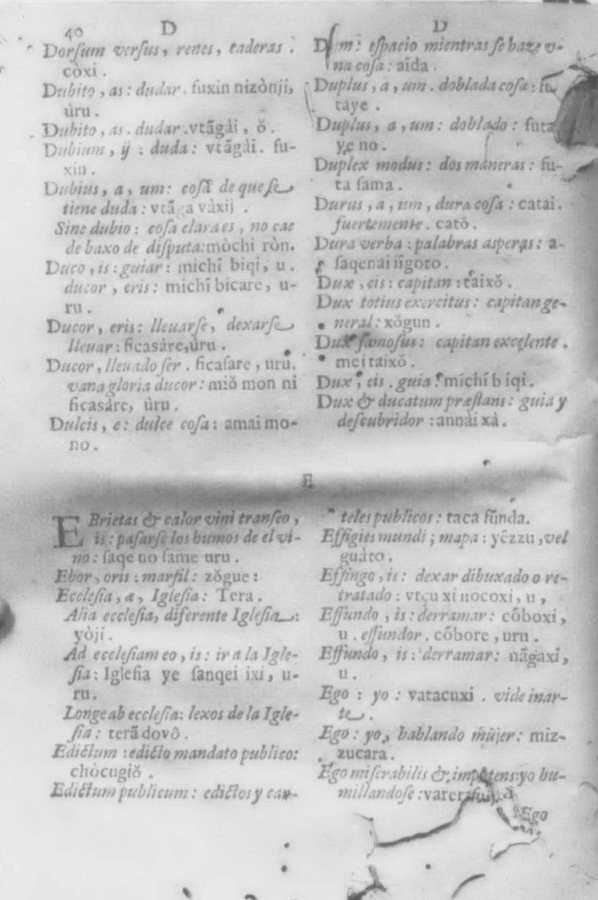 40 D
Dorsum versus, renes, caderas.
còxi.
Dubito, as: dudar. fuxin nizònji,
ùru.
Dubito, as. dudar. vtãgài, ŏ.
Dubium, ÿ: duda: vtãgài. fu-
xin.
Dubius, a, um: cosa de que se
tiene duda: vtãga vàxij.
Sine dubio: cosa clara es, no cae
de baxo de disputa: mòchi ròn.
Duco, is: guiar: michĩ biqi, u.
ducor, eris: michĩ bicare, u-
ru.
Ducor, eris: lleuarse, dexarse
lleuar: ficasàre, ùru.
Ducor, lleuado ser. ficasare, uru.
vana gloria ducor: miŏ mon ni
ficasàre, ùru.
Dulcis, e: dulce cosa: amai mo-
no.
D
: espacio mientras se haze v-
na cosa: aìda.
Duplus, a, um. doblada cosa: fu
taye.
Duplus, a, um: doblado: futa
ye no.
Duplex modus: dos maneras: fu-
ta sama.
Durus, a, um, dura cosa: catai.
fuertemente. catŏ.
Dura verba: palabras asperas: a-
saqenai
Dux, cis: capitan: taixŏ.
Dux totius exercitus: capitan ge-
neral: xŏgun.
Dux famosus: capitan excelente.
mei taixŏ.
Dux, cis. guia: michĩ biqi.
Dux & ducatum præstans: guia y
descubridor: annài xà.
E
EBrietas & calor vini transeo,
is: pasarse los humos de el vi-
no: saqe no same uru.
Ebor, oris: marfil: zŏgue:
Ecclesia, æ, Iglesia: Tera.
Alia ecclesia, diferente Iglesia:
yòji.
Ad ecclesiam eo, is: ir a la Igle-
sia: Iglesia ye sanqei ixi, u-
ru.
Longe ab ecclesia: lexos de la Igle-
sia: terã dovŏ.
Edictum: edicto mandato publico:
chòcugiŏ.
Edictum publicum: edictos y car-
teles publicos: taca fũnda.
Effigies mundi; mapa: yĉzzu, vel
guàto.
Effingo, is: dexar dibuxado o re-
tratado: vtçu xi nocoxi, u,
Effundo, is: derramar: cŏboxi,
u. effundor. cŏbore, uru.
Effundo, is: derramar: nãgaxi,
u.
Ego: yo: vatacuxi. vide inar-
te.
Ego: yo, hablando mujer: miz-
zucara.
Ego miserabilis & impotens: yo hu-
millandose:
Ego